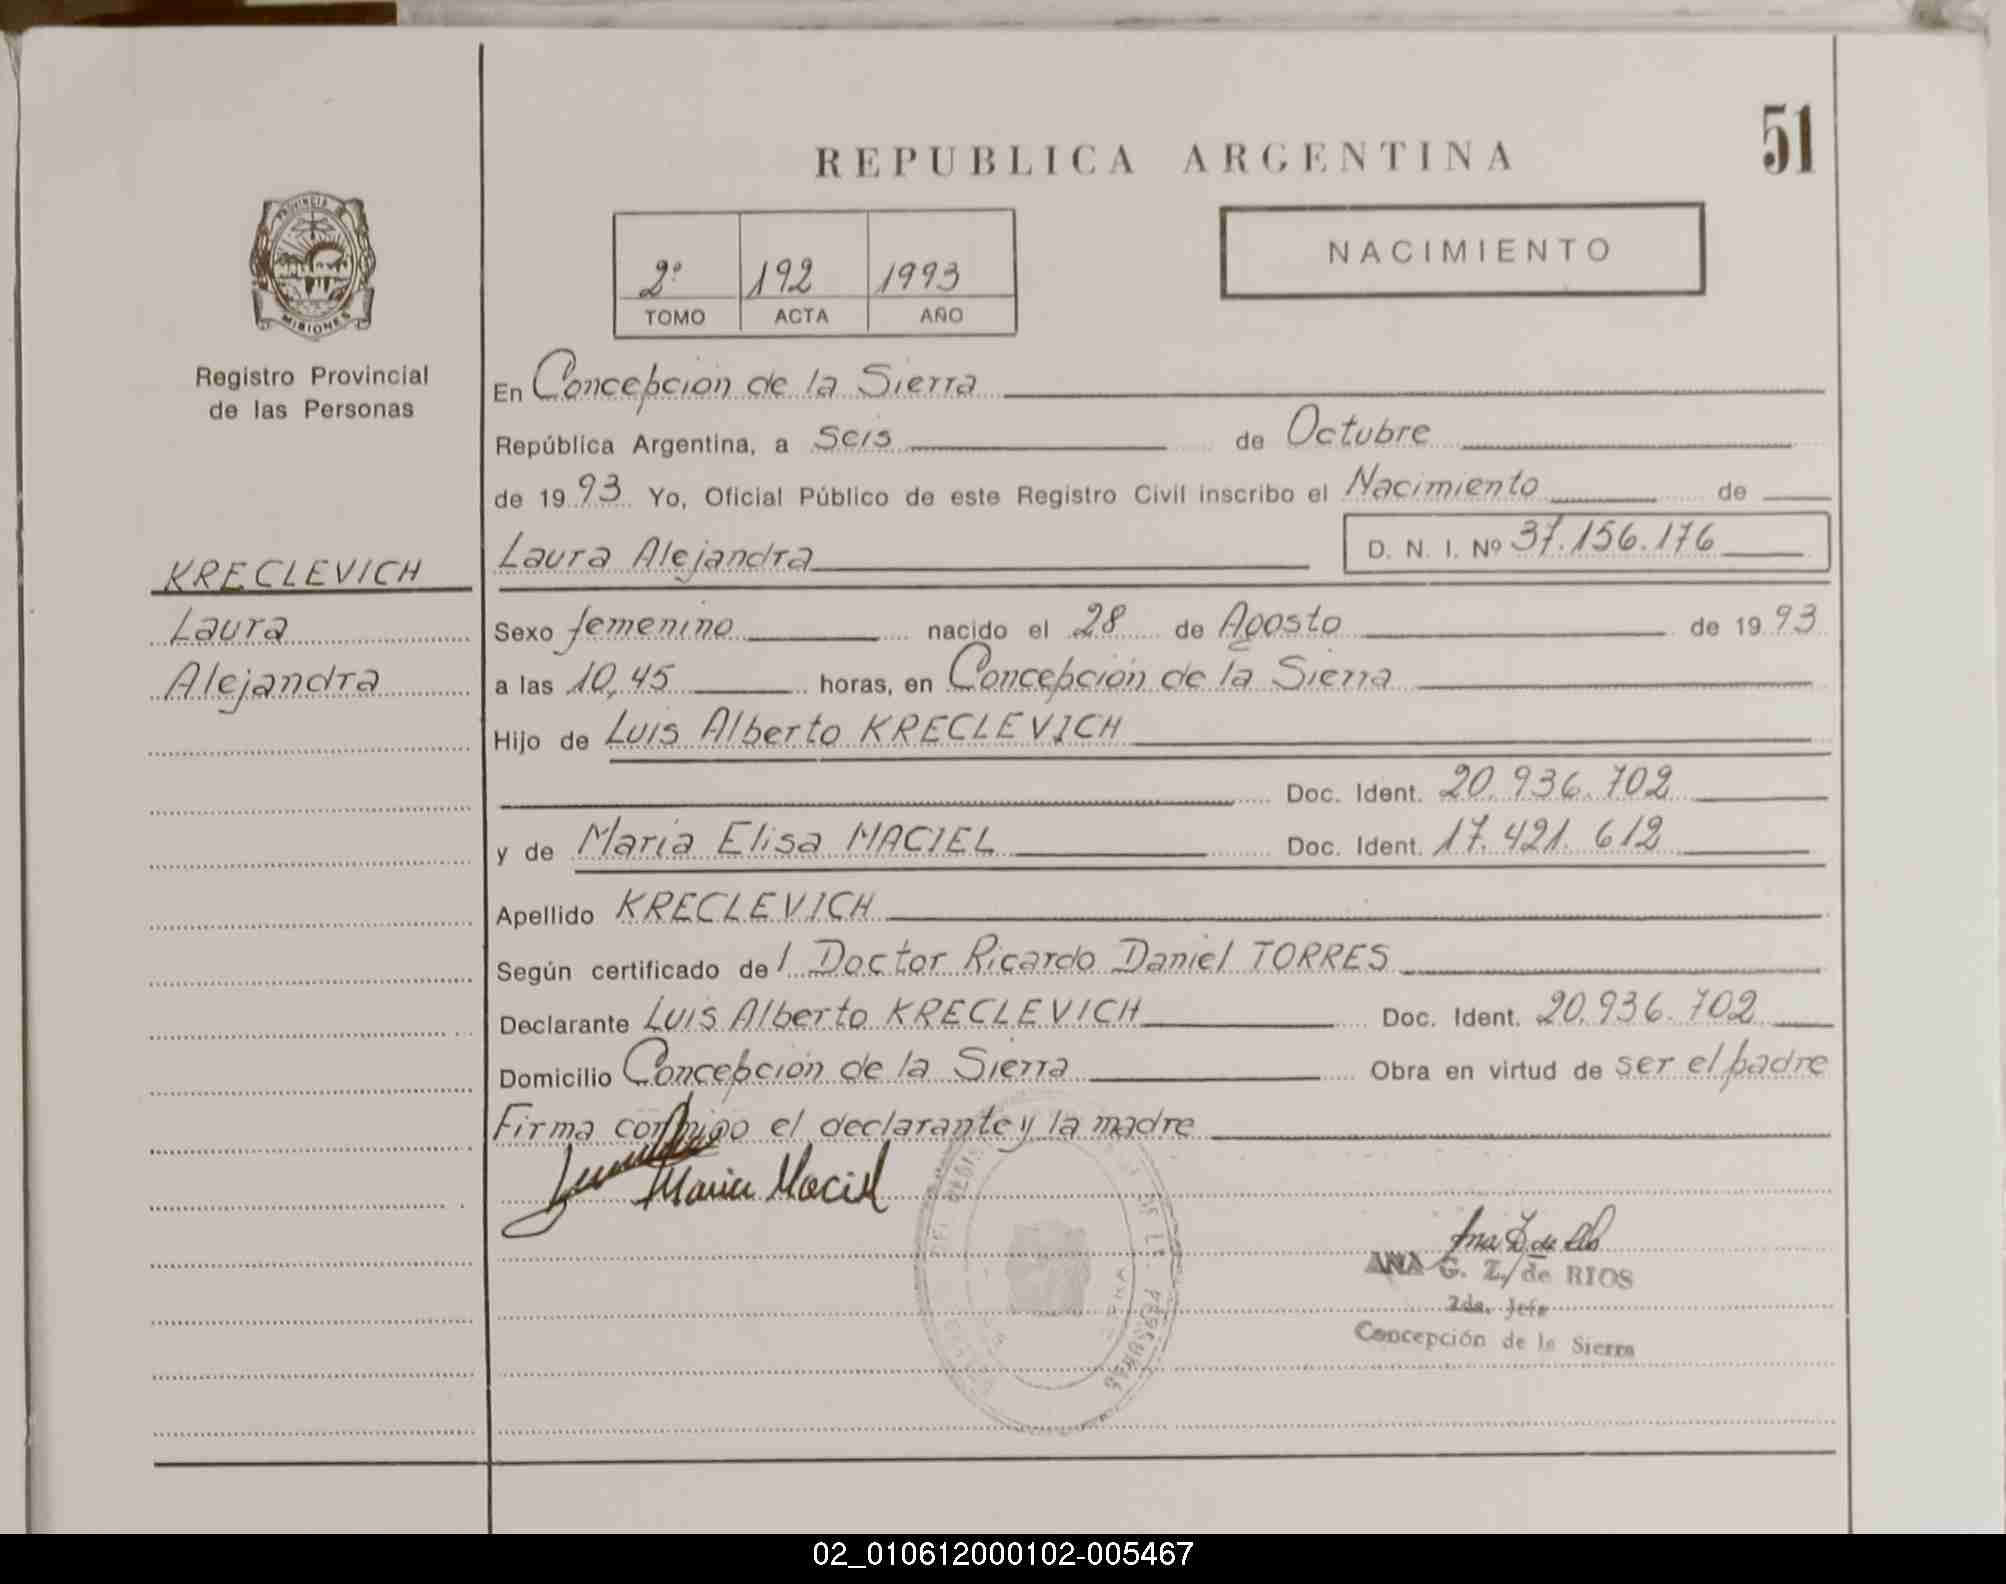 51
REPUBLICA ARGENTINA
NACIMIENTO
2º 192 1993
TOMO ACTA AÑO
PROVINCIA DE
MISIONES
Registro Provincial
de las Personas
KRECLEVICH
Laura
Alejandra
En Concepcion de la Sierra
República Argentina, a Seis de Octubre
de 1993 Yo, Oficial Público de este Registro Civil inscribo el Nacimiento de
Laura Alejandra D. N. I. Nº 37.156.176
Sexo femenino nacido el 28 de Agosto de 1993
a las 10,45 horas, en Concepción de la Sierra
Hijo de Luis Alberto KRECLEVICH
Doc. Ident. 20.936.702
y de María Elisa MACIEL Doc. Ident. 17.421.612
Apellido KRECLEVICH
Según certificado del Doctor Ricardo Daniel TORRES
Declarante Luis Alberto KRECLEVICH Doc. Ident. 20.936.702
Domicilio Concepción de la Sierra Obra en virtud de ser el padre
Firma conmigo el declarante y la madre
Maria Maciel
ANA G. Z. de RIOS
2da. Jefe
Concepción de la Sierra
02_010612000102-005467